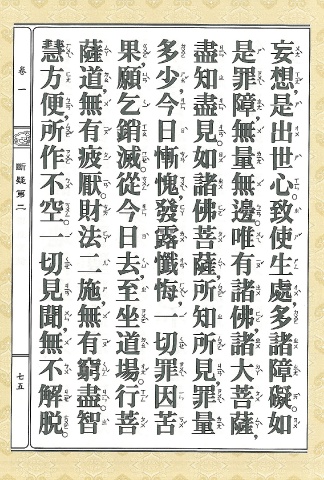 妄想,是出世心。致使生處,多諸障礙。如
是罪障,無量無邊。唯有諸佛,諸大菩薩,
盡知盡見。如諸佛菩薩,所知所見,罪量
多少,今日慚愧,發露懺悔,一切罪因苦
果,願乞銷滅。從今日去,至坐道場,行菩
薩道,無有疲厭。財法二施,無有窮盡。智
慧方便,所作不空。一切見聞,無不解脫。
卷一
斷疑第二
七五